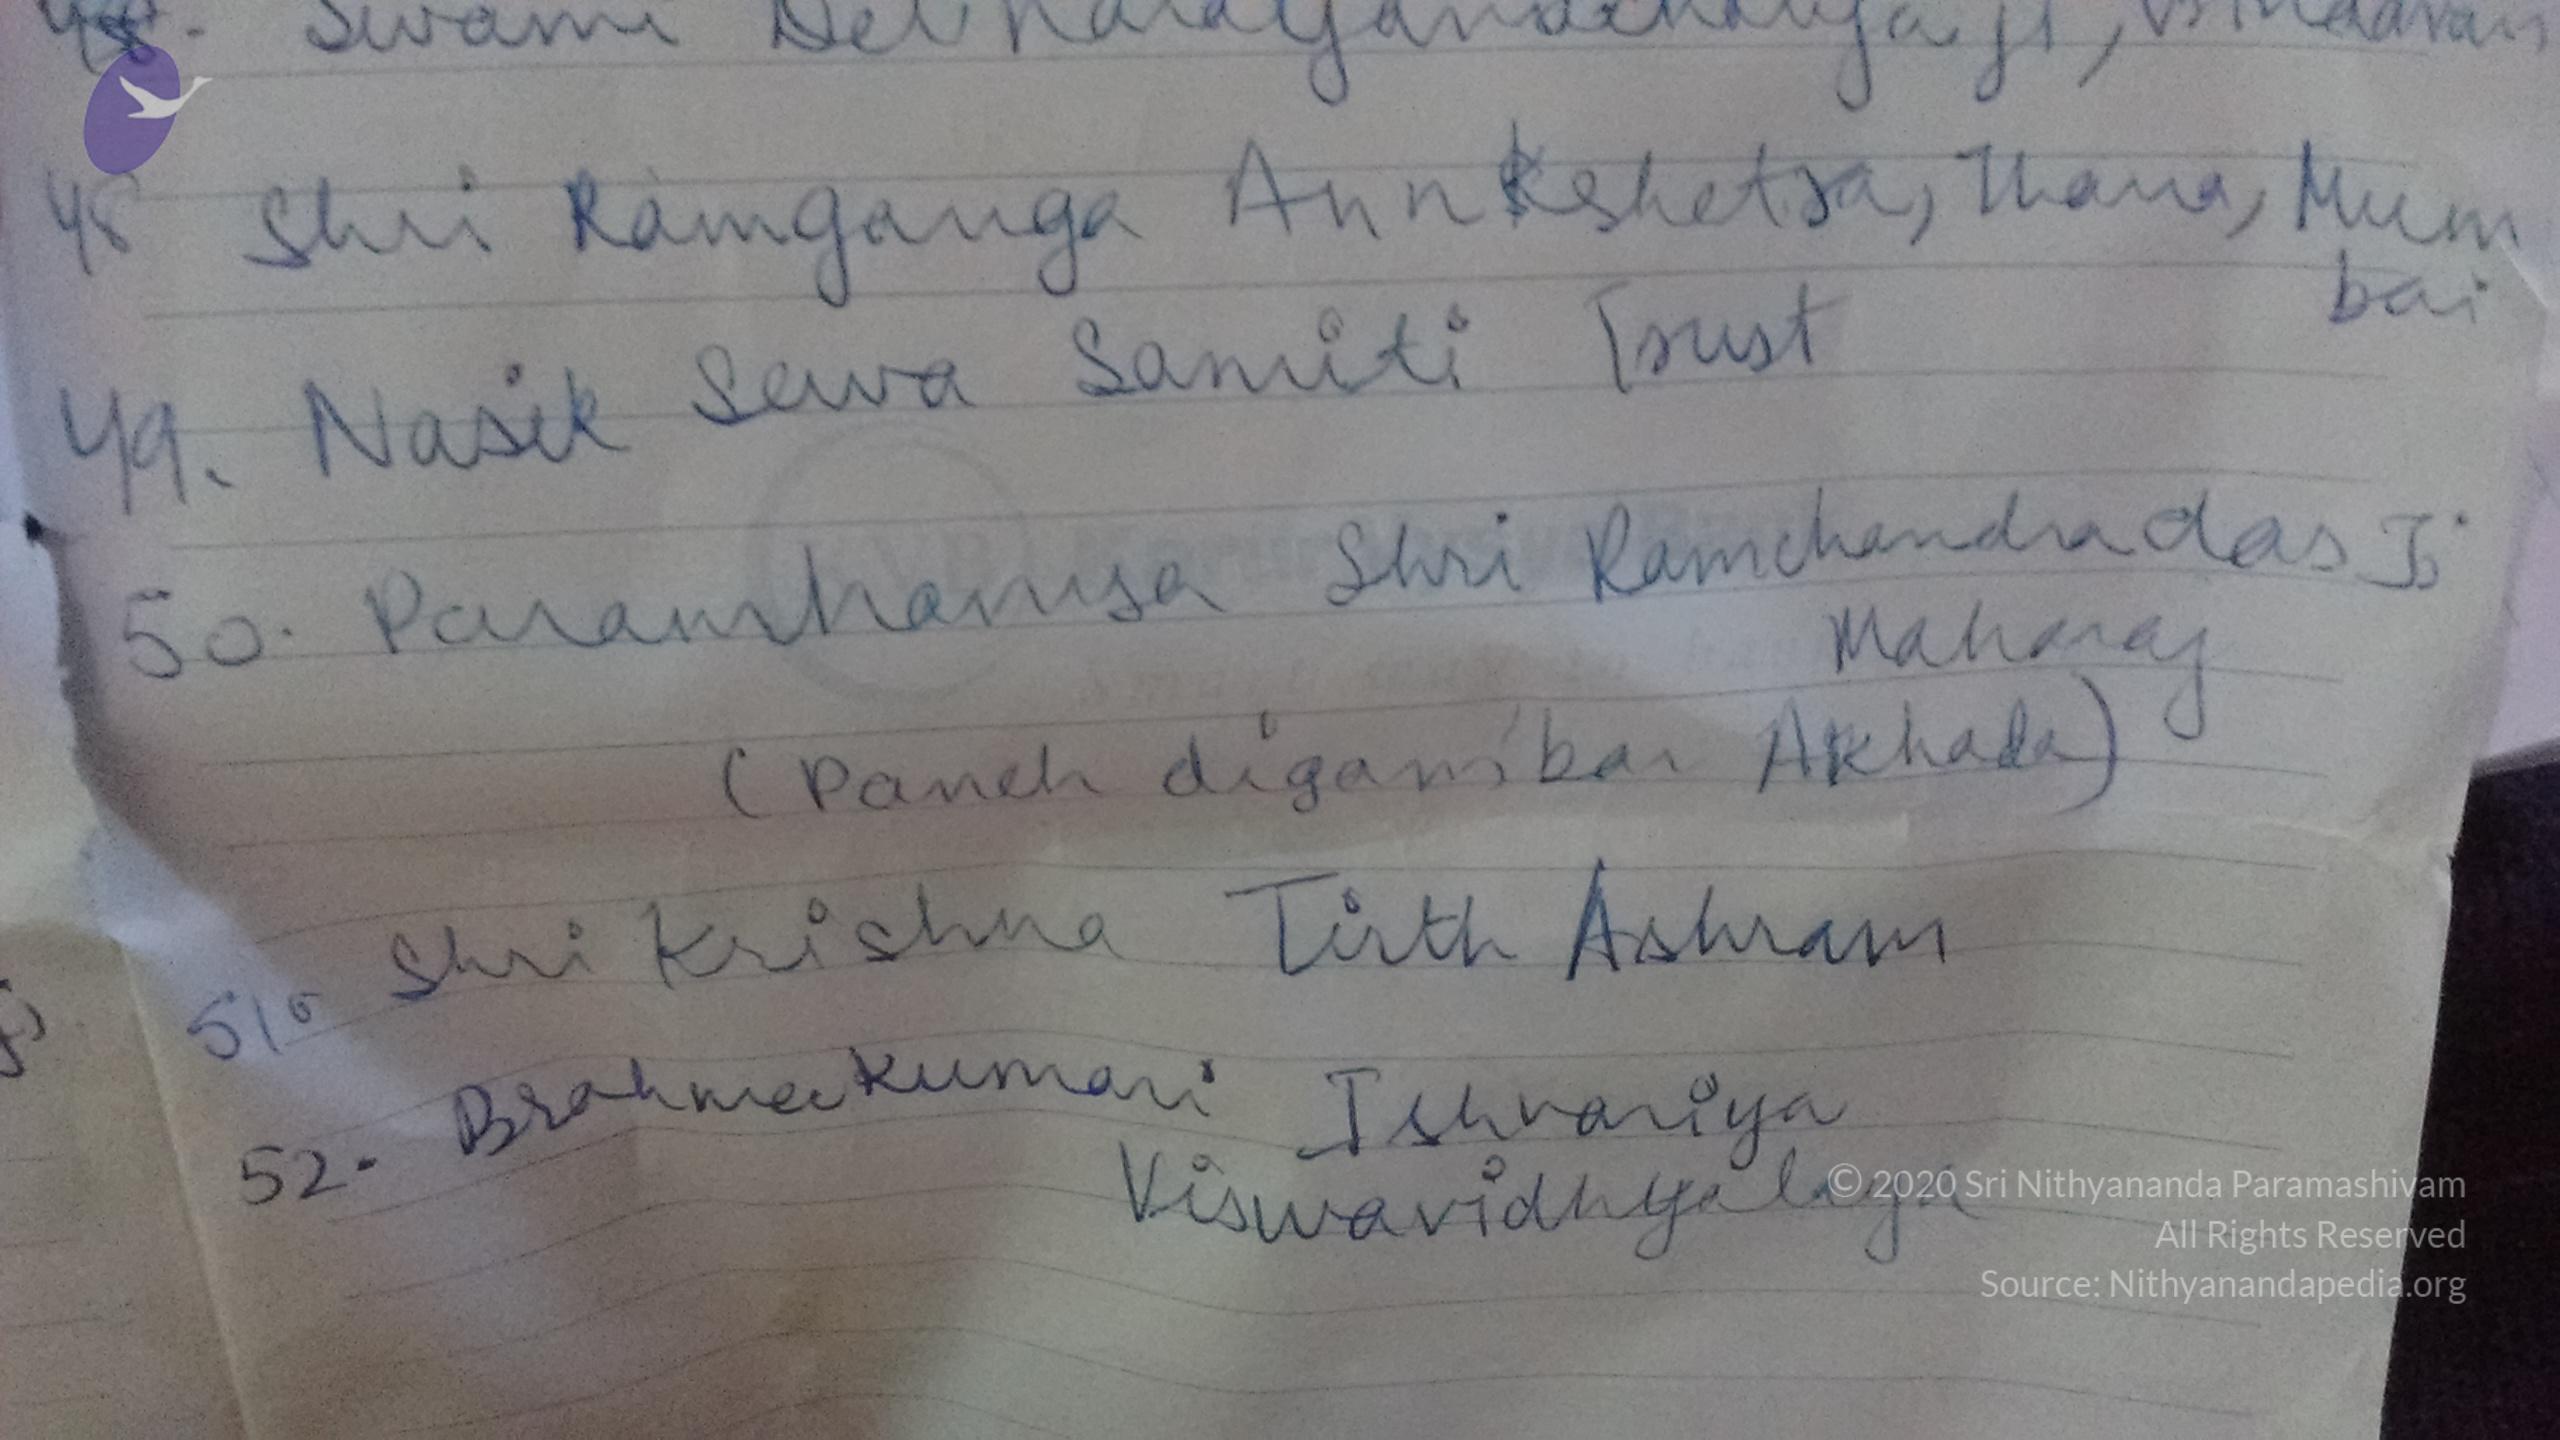 Swami
48 Shri Ramganga Annkshetra, Thana, Mum
bai
49. Nasik Sewa Samiti Trust
50. Paramhamsa Shri Ramchandradas Ji
Maharaj
(Panch digambar Akhada)
51. Shri Krishna Tirth Ashram
52. Brahmakumari Ishvariya
Viswavidhyalaya
© 2020 Sri Nithyananda Paramashivam
All Rights Reserved
Source: Nithyanandapedia.org